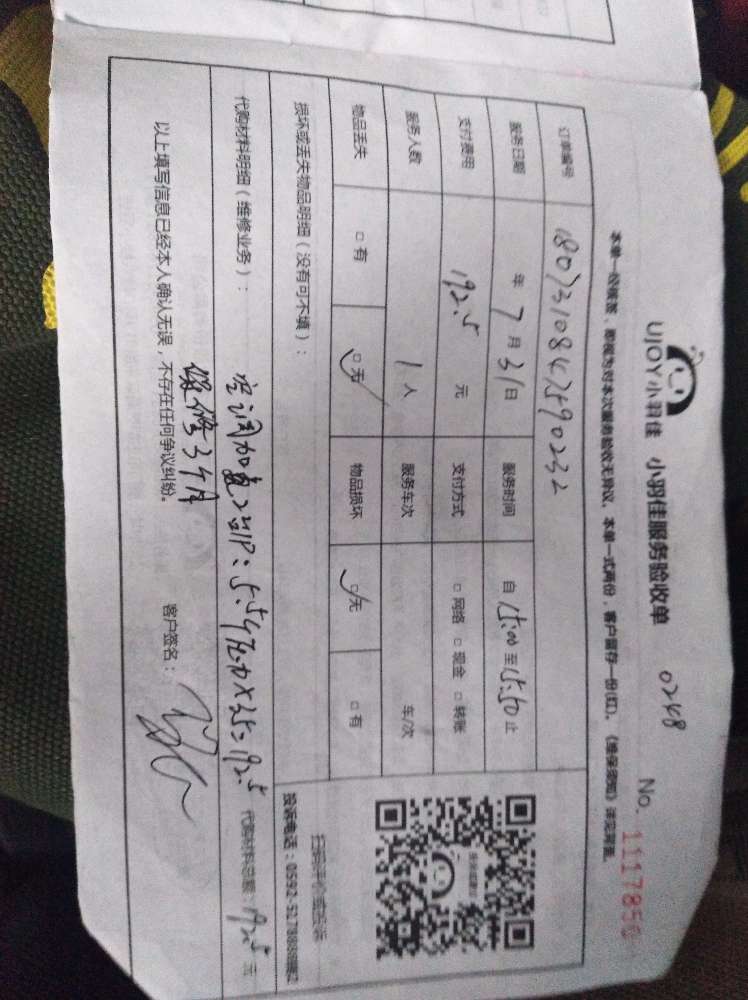 UJOY小羽佳 小羽佳服务验收单 0248 No. 1117850
本单一经签署，即视为对本次服务验收无异议。本单一式两份，客户留存一份(红)。《维保须知》详见背面。
订单编号 1807310847590232
服务日期 年 7 月 31 日 服务时间 自 15:00 至 15:50 止
支付费用 192.5 元 支付方式 □ 网络 □ 现金 □ 转账
服务人数 1 人 服务车次 车/次
物品丢失 □ 有 □ 无 物品损坏 □ 无 □ 有
损坏或丢失物品明细（没有可不填）：
投诉电话：0592-5178888
代购材料明细（维修业务）： 空调加氟 5.5个压力×35=192.5 代购材料总额：192.5 元
保修3个月
以上填写信息已经本人确认无误，不存在任何争议纠纷。 客户签名：